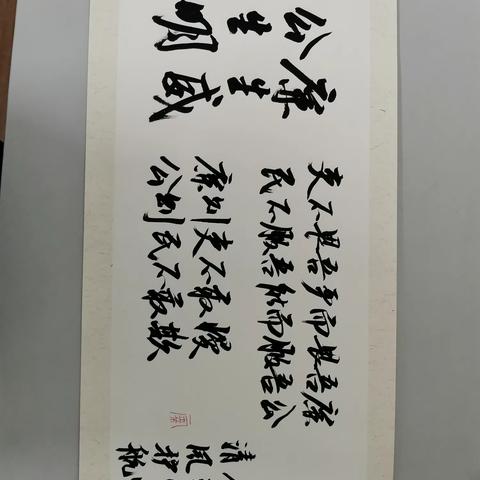 公生明
廉生威
吏不畏吾严而畏吾廉
民不服吾能而服吾公
廉则吏不敢慢
公则民不敢欺
清风护航